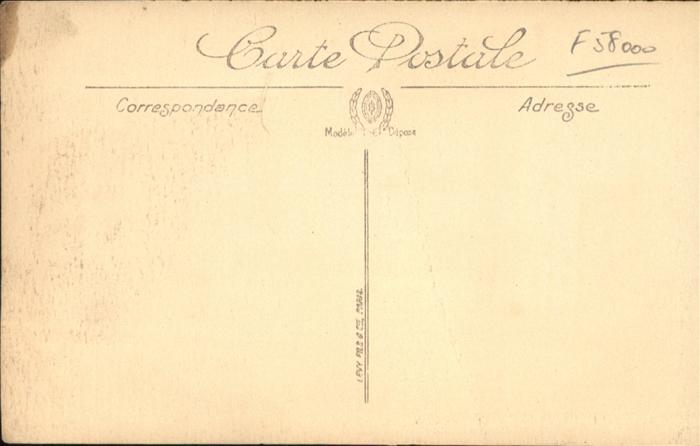 Carte Postale
F 58000
Correspondance
Adresse
Modèle Déposé
LEVY FILS & CIE PARIS